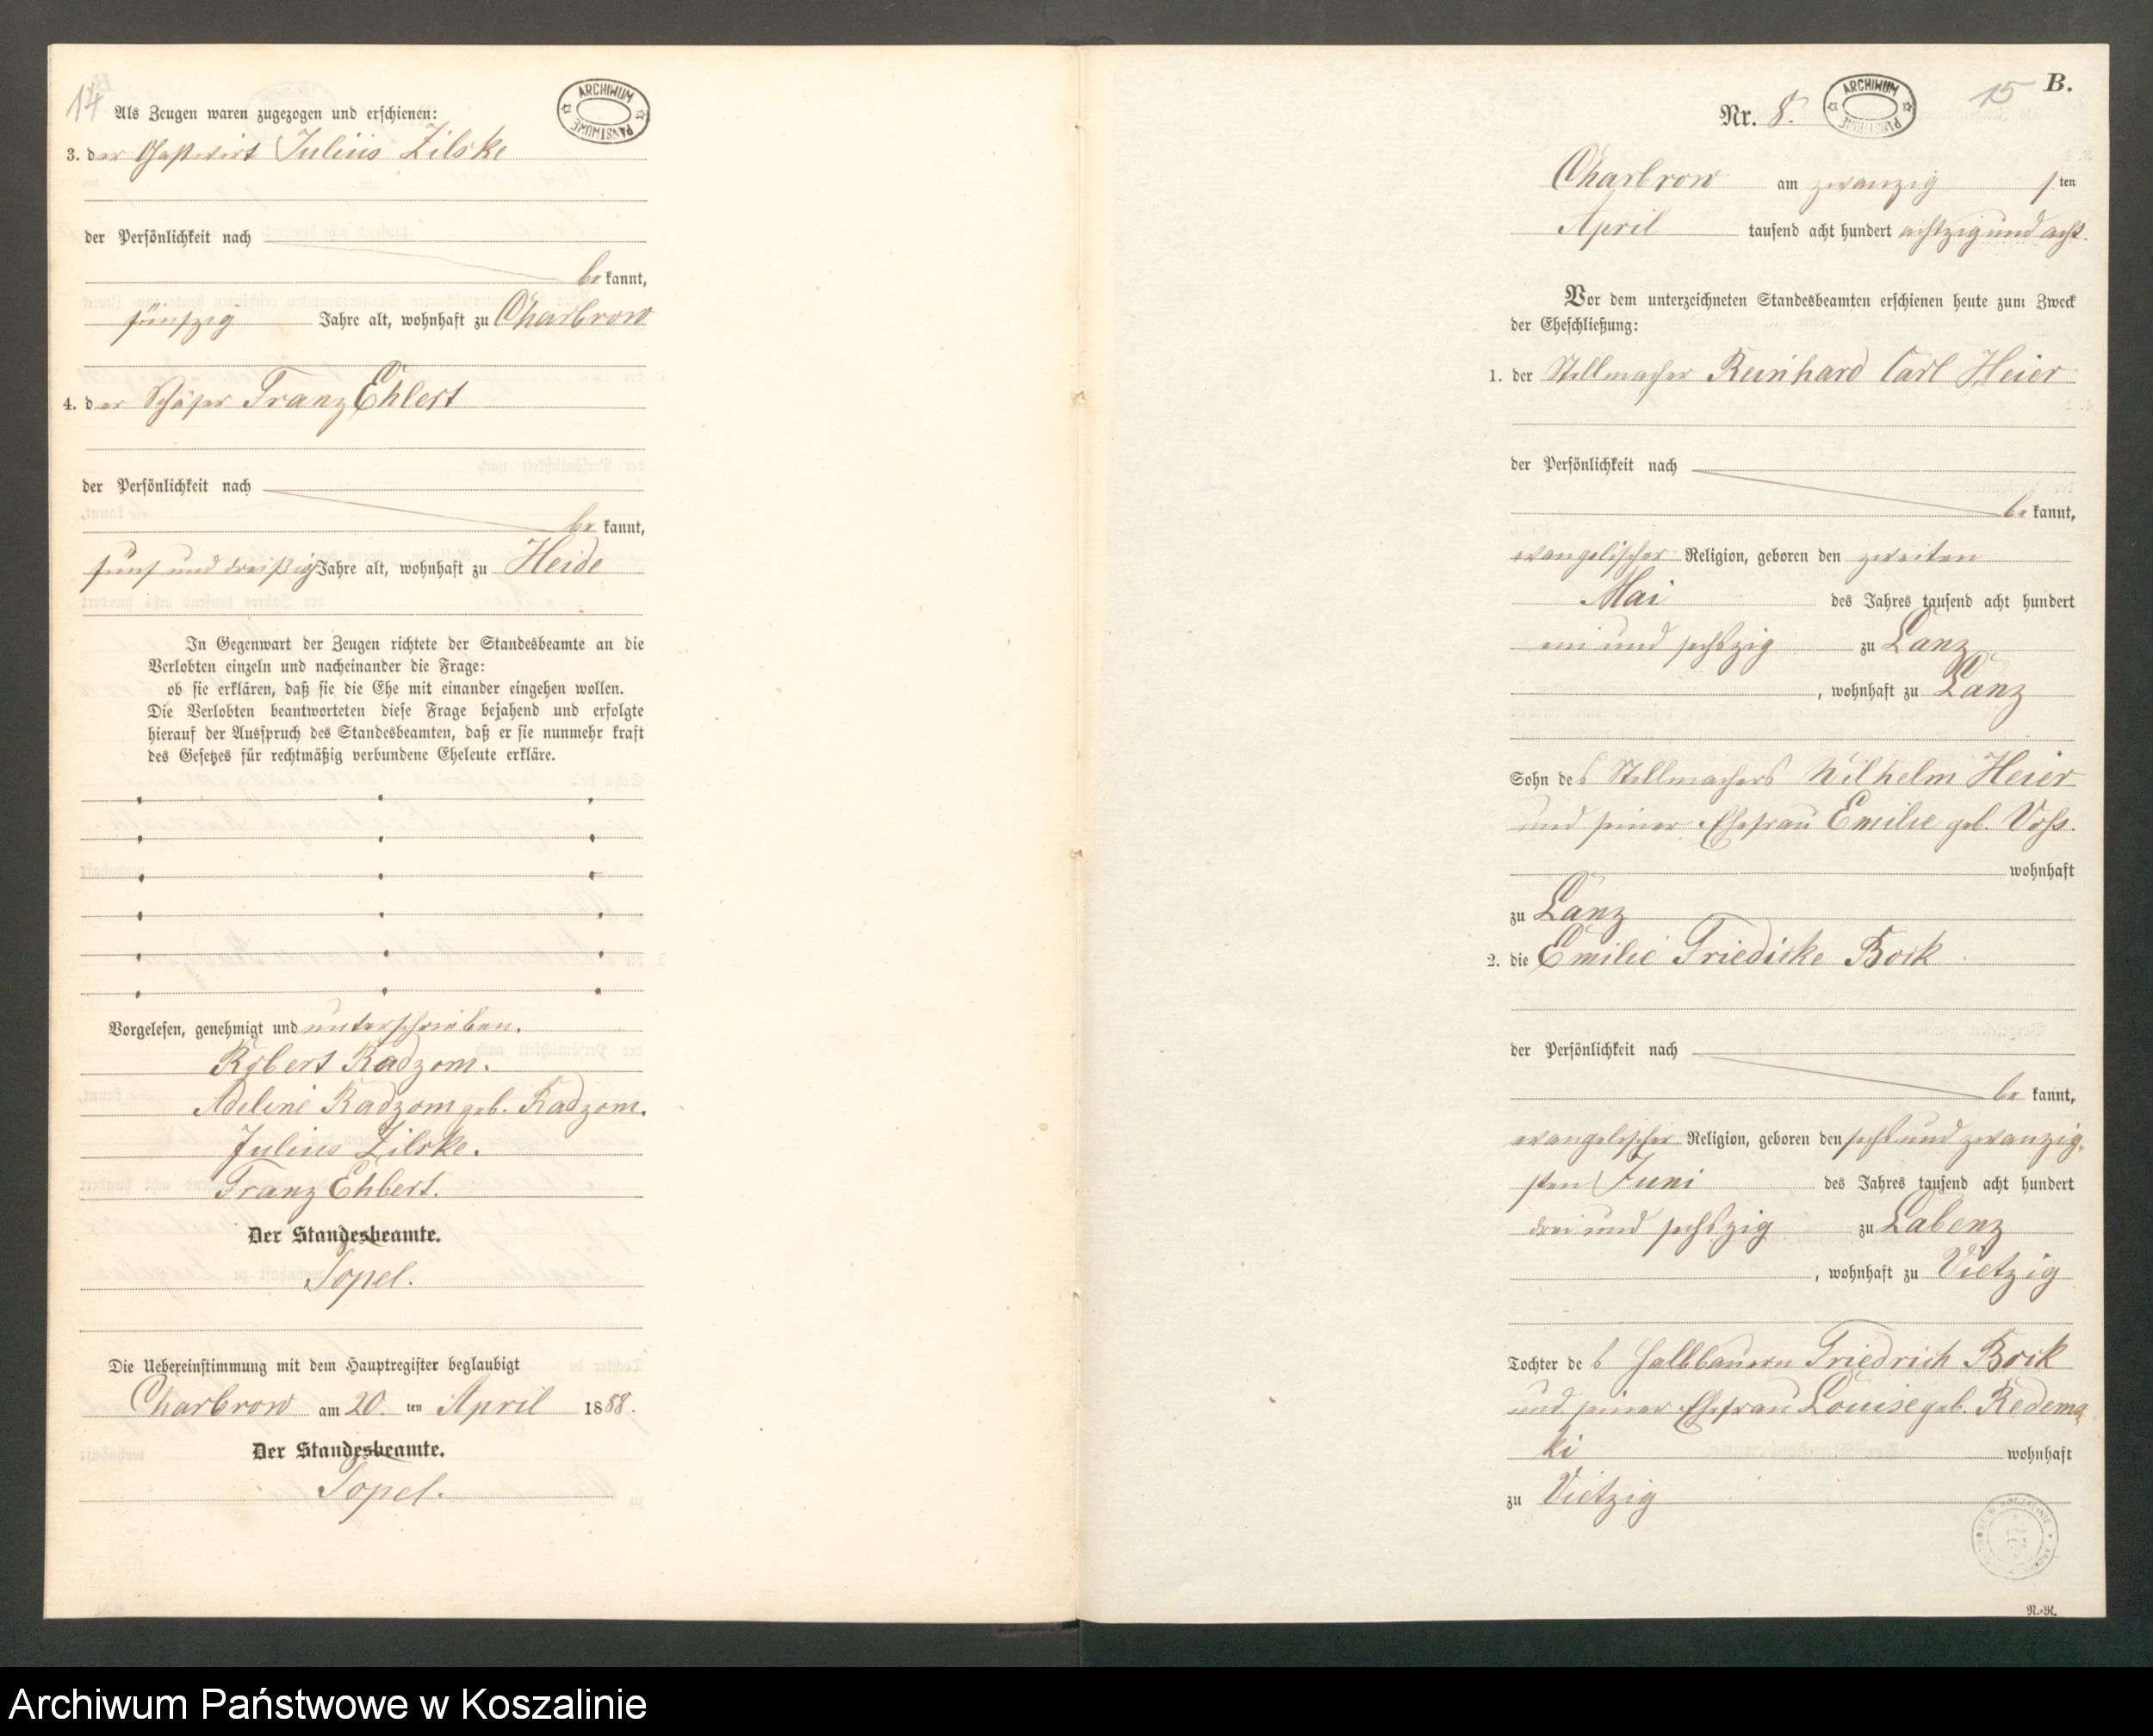 14
ARCHIWUM PAŃSTWOWE
Als Zeugen waren zugezogen und erschienen:
3. der Gastwirt Julius Zilske
der Persönlichkeit nach
bekannt,
fünfzig Jahre alt, wohnhaft zu Charbrow
4. der Schäfer Franz Ehlert
der Persönlichkeit nach
bekannt,
fünf und dreißig Jahre alt, wohnhaft zu Heide
In Gegenwart der Zeugen richtete der Standesbeamte an die
Verlobten einzeln und nacheinander die Frage:
ob sie erklären, daß sie die Ehe mit einander eingehen wollen.
Die Verlobten beantworteten diese Frage bejahend und erfolgte
hierauf der Ausspruch des Standesbeamten, daß er sie nunmehr kraft
des Gesetzes für rechtmäßig verbundene Eheleute erkläre.
Vorgelesen, genehmigt und unterschrieben.
Robert Radzom.
Adeline Radzom geb. Radzom.
Julius Zilske.
Franz Ehlert.
Der Standesbeamte.
Topel.
Die Uebereinstimmung mit dem Hauptregister beglaubigt
Charbrow am 20. ten April 1888.
Der Standesbeamte.
Topel.
15 B.
Nr. 8.
ARCHIWUM PAŃSTWOWE
Charbrow am zwanzigsten
April tausend acht hundert achtzig und acht.
Vor dem unterzeichneten Standesbeamten erschienen heute zum Zweck
der Eheschließung:
1. der Stellmacher Reinhard Carl Heier
der Persönlichkeit nach
bekannt,
evangelischer Religion, geboren den zweiten
Mai des Jahres tausend acht hundert
ein und sechszig zu Lanz
, wohnhaft zu Lanz
Sohn des Stellmachers Wilhelm Heier
und seiner Ehefrau Emilie geb. Voss.
wohnhaft
zu Lanz
2. die Emilie Friedicke Bock
der Persönlichkeit nach
bekannt,
evangelischer Religion, geboren den sechs und zwanzig-
sten Juni des Jahres tausend acht hundert
drei und sechszig zu Labenz
, wohnhaft zu Vietzig
Tochter des Halbbauern Friedrich Bock
und seiner Ehefrau Louise geb. Redems
ki wohnhaft
zu Vietzig
R.-R.
Archiwum Państwowe w Koszalinie